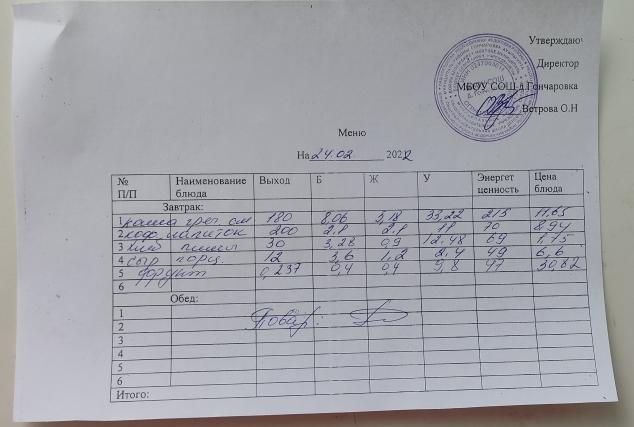 Утверждаю
Директор
МБОУ СОШ д.Гончаровка
Ветрова О.Н
Меню
На 24.02 2022
№ П/П Наименование блюда Выход Б Ж У Энергет ценность Цена блюда
Завтрак:
1 каша греч. 180 8,06 3,18 33,22 213 11,65
2 кофе. напиток 200 2,8 2,8 70 8,94
3 хлеб пшен 30 3,28 0,9 12,48 69 1,75
4 сыр порц. 12 3,6 1,2 2,4 49 6,6
5 фрукт 0,237 0,4 0,4 9,8 47 30,82
6
Обед:
1
2 Повар:
3
4
5
6
Итого: